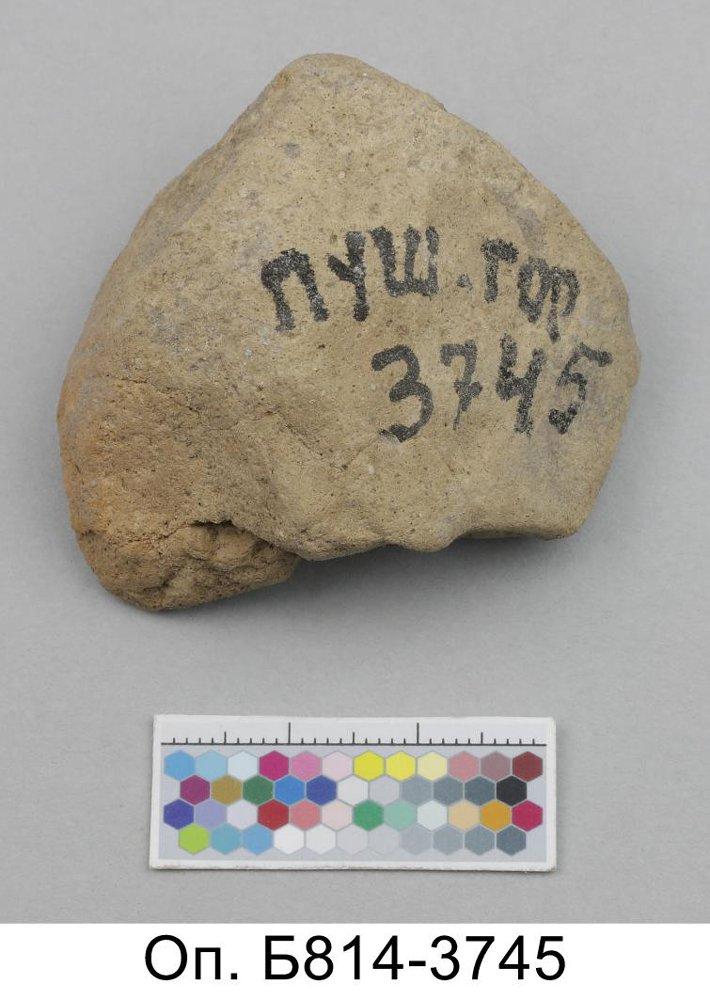 ПУШ.ГОР
3745
Оп. Б814-3745